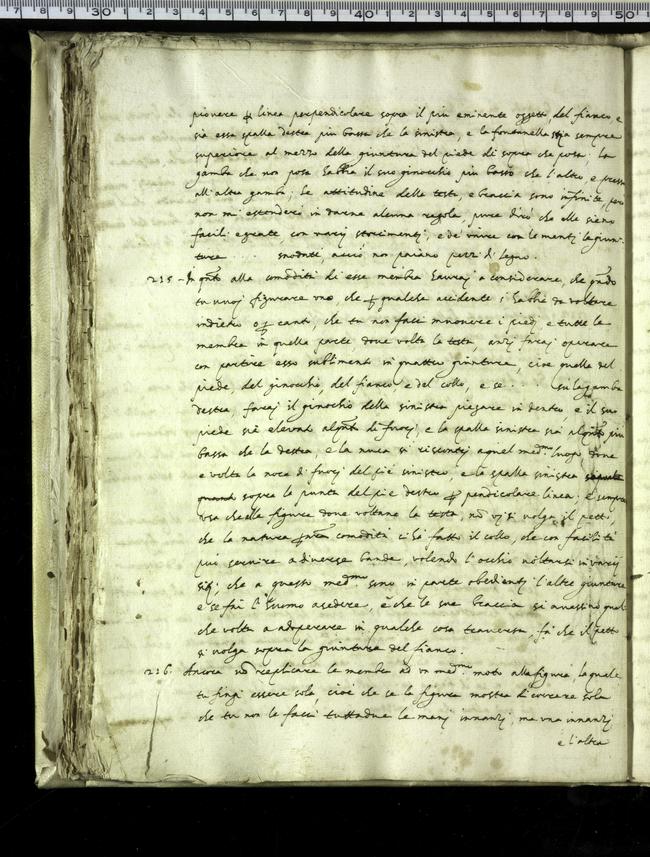 piovere per linea perpendicolare sopra il più eminente oggetto del fianco, e
sia essa spalla destra più bassa che la sinistra, e la fontanella stia sempre
superiore al mezzo della giuntura del piede di sopra che posa: la
gamba che non posa habbia il suo ginochio più basso che l'altro, e presso
all'altra gamba; le attitudine della testa, e braccia sono infinite, però
non mi estenderò in darne alcuna regola, pure dirò che elle sieno
facili e grate, con varij storcimenti, e de vivere con le menti le giun-
ture snodate, acciò non paiano pezzi di legno.
235 - In quanto alla comodità di esse membra haverai a considerare, che quando
tu vuoi figurare uno, che per qualche accidente si habbia da voltare
indietro o per canto, che tu non facci muovere i piedi e tutte le
membra in quella parte dove volta la testa anzi farai operare
con partire esso in quattro giunture, cioè quella del
piede, del ginochio, del fianco e del collo, e se su la gamba
destra, farai il ginochio della sinistra piegare in dentro, e il suo
piede sia elevato alquanto di fuori, e la spalla sinistra sia alquanto più
bassa che la destra, e la nuca si riscontri a quel medmo luogo dove
è volta la noce di fuori del piè sinistro, e la spalla sinistra
sopra la punta del piè destro per pendicolare linea; e sempre
usa che le figure dove voltano la testa, non vi si volga il petto,
che la natura per nostra comodità ci hà fatto il collo, che con facilità
può servire a diverse bande, volendo l'occhio voltarsi in varij
siti; che a questo medmo sono in parte obedienti l'altre giunture
e se fai l'huomo a sedere, e che le sue braccia si avessino qual
che volta a adoperare in qualche cosa traversa, fà che il petto
si volga sopra la giuntura del fianco.
236. Ancora non replicare le membra ad un medmo moto alla figura, la quale
tu fingi essere sola, cioè che se la figura mostra di correre sola
che tu non le facci tuttadue le mani innanzi, ma una innanzi
e l'altra